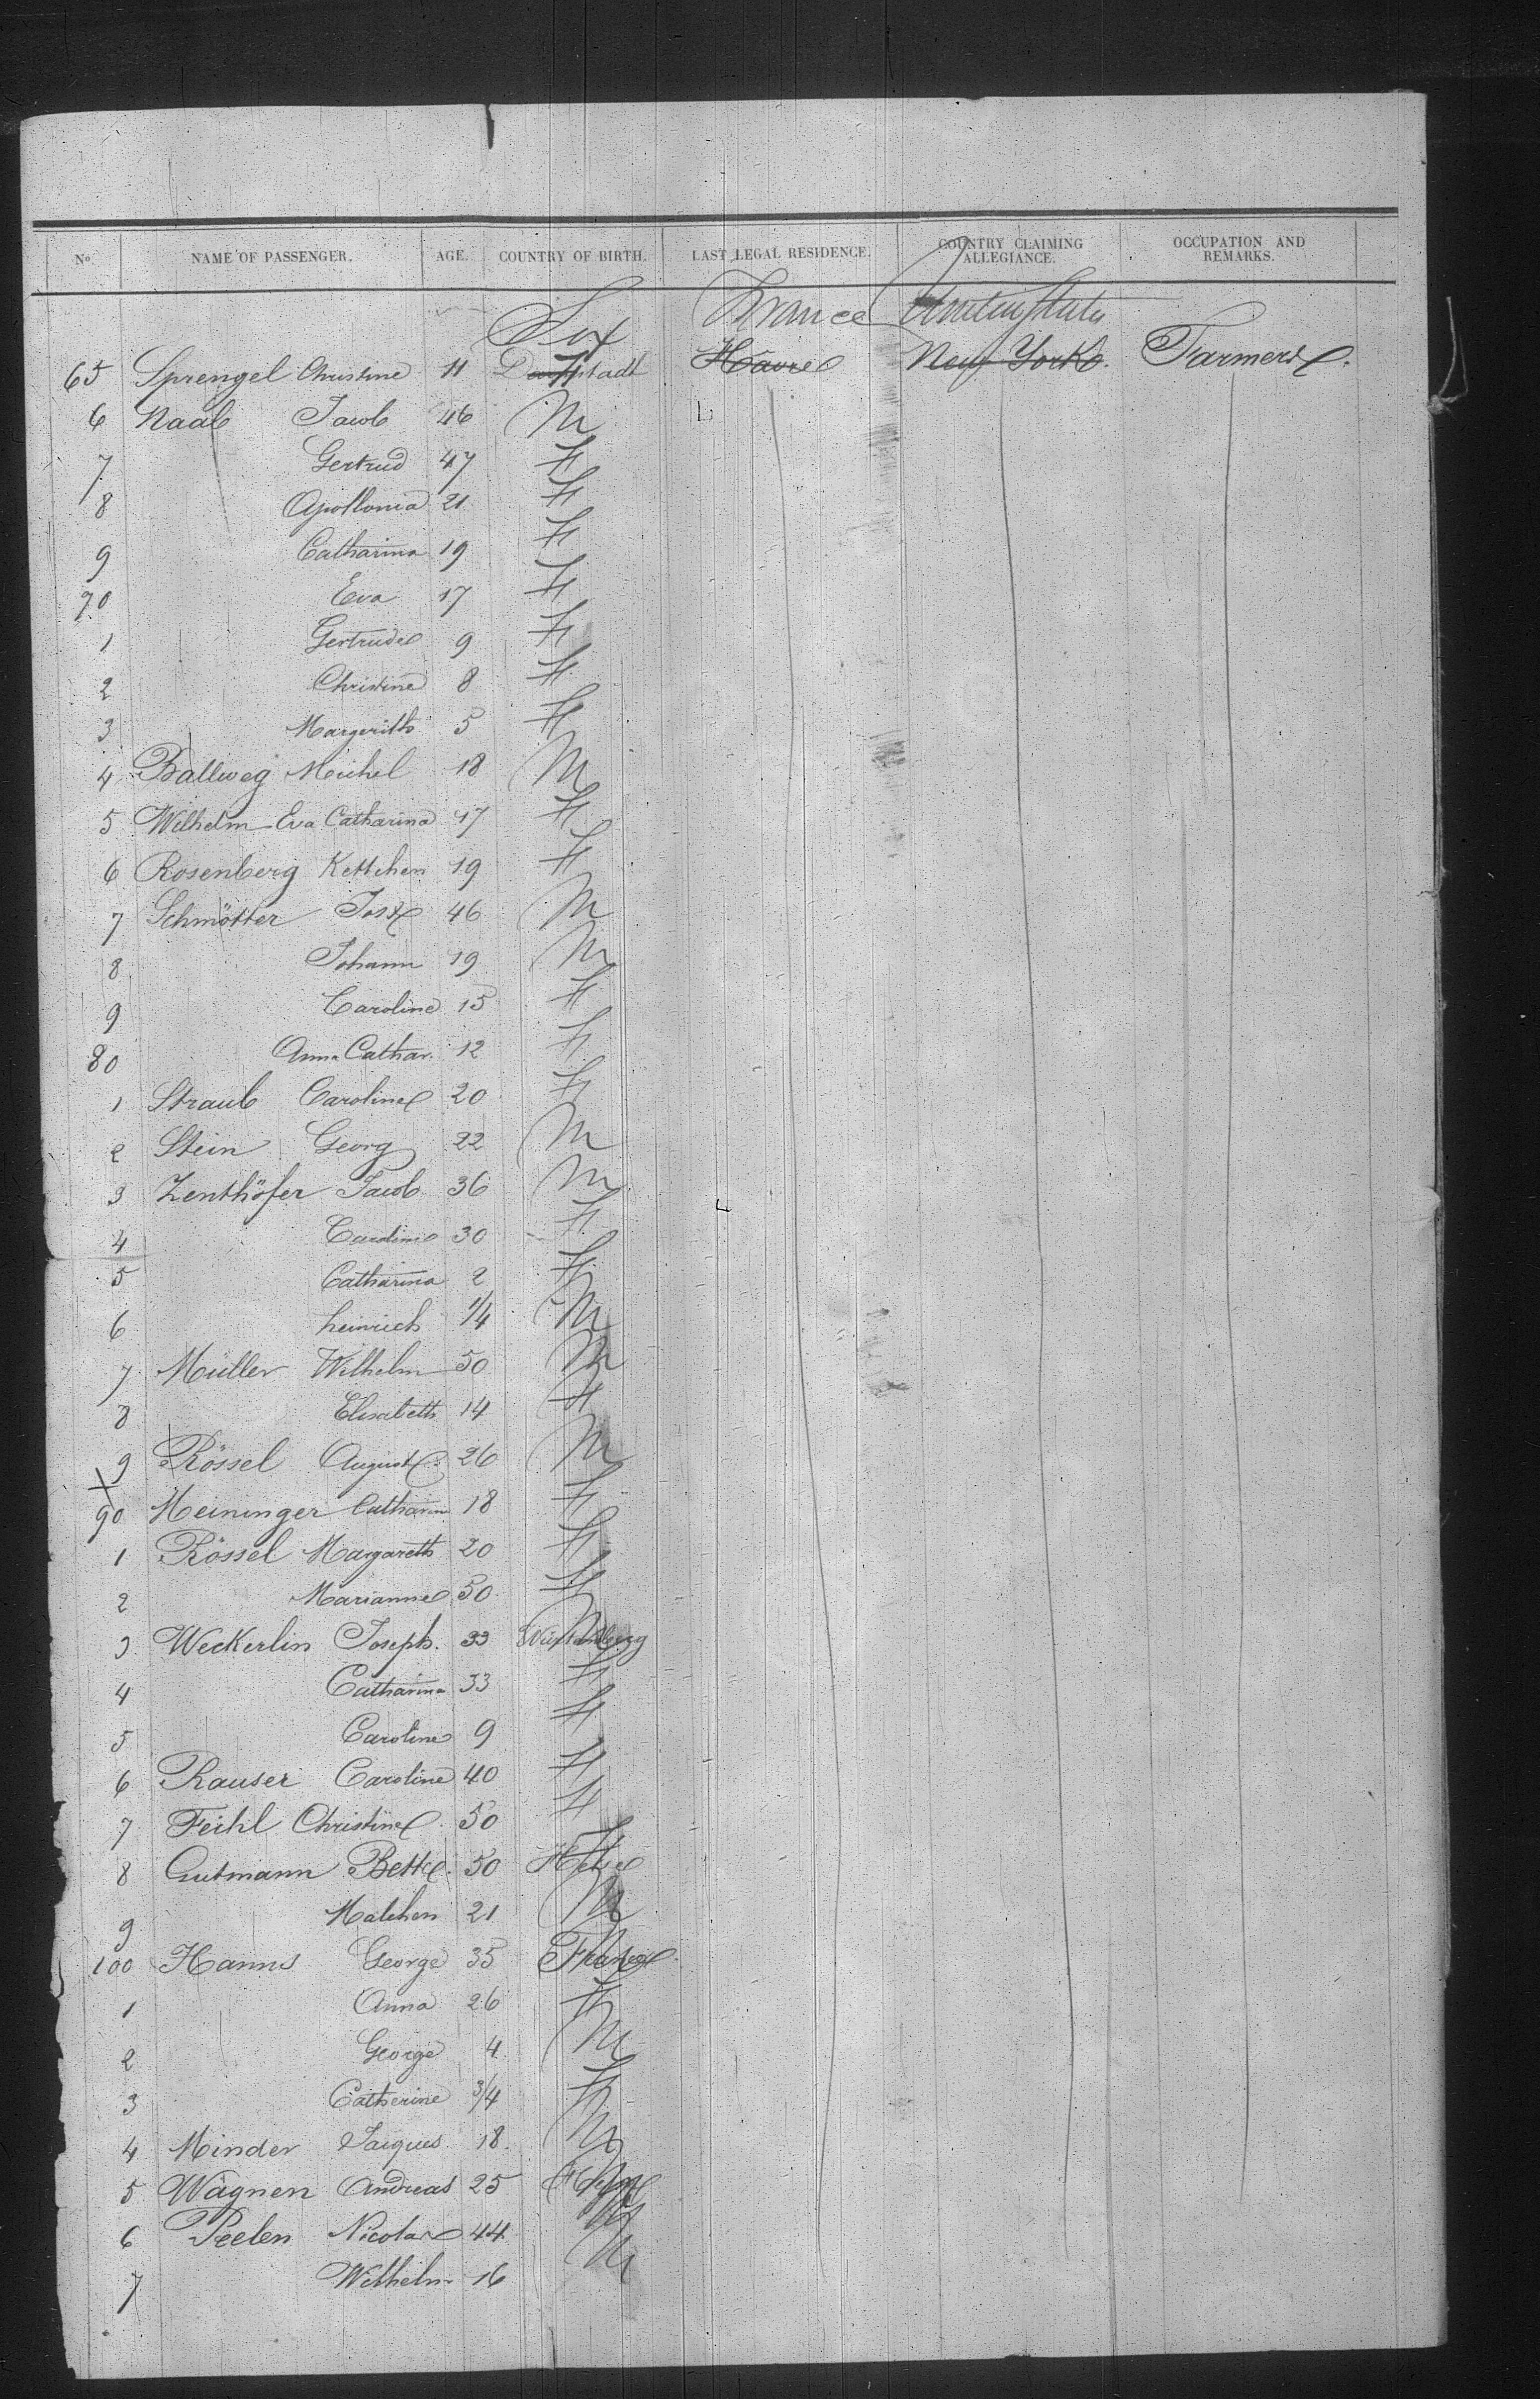 No. NAME OF PASSENGER. AGE. COUNTRY OF BIRTH. LAST LEGAL RESIDENCE. COUNTRY CLAIMING ALLEGIANCE. OCCUPATION AND REMARKS.
Sex France United States
65 Sprengel Christine 11 Darmstadt F Havre New York Farmers
6 Naab Jacob 46 M
7 Gertrud 47 F
8 Apollonia 21 F
9 Catharina 19 F
70 Eva 17 F
1 Gertrude 9 F
2 Christine 8 F
3 Margarith 5 F
4 Ballweg Michel 18 M
5 Wilhelm Eva Catharina 17 F
6 Rosenberg Kettchen 19 F
7 Schmötter Jost 46 M
8 Johann 19 M
9 Caroline 15 F
80 Anna Cathar. 12 F
1 Straub Caroline 20 F
2 Stein Georg 22 M
3 Zenthöfer Jacob 36 M
4 Caroline 30 F
5 Catharina 2 F
6 heinrich 1/4 M
7 Müller Wilhelm 50 M
8 Elisabeth 14 F
9 Rössel August 26 M
90 Meininger Catharin 18 F
1 Rössel Margareth 20 F
2 Marianne 50 F
3 Weckerlin Joseph. 33 Würtemberg M
4 Catharina 33 F
5 Caroline 9 F
6 Rauser Caroline 40 F
7 Feihl Christine 50 F
8 Gutmann Bette. 50 F
9 Malchen 21
100 Hanns George 35 France M
1 Anna 26 F
2 George 4 M
3 Catherine 3/4 F
4 Minder Jacques 18. M
5 Wagnen Andreas 25 M
6 Peelen Nicolas 44 M
7 Wilhelm 16 M